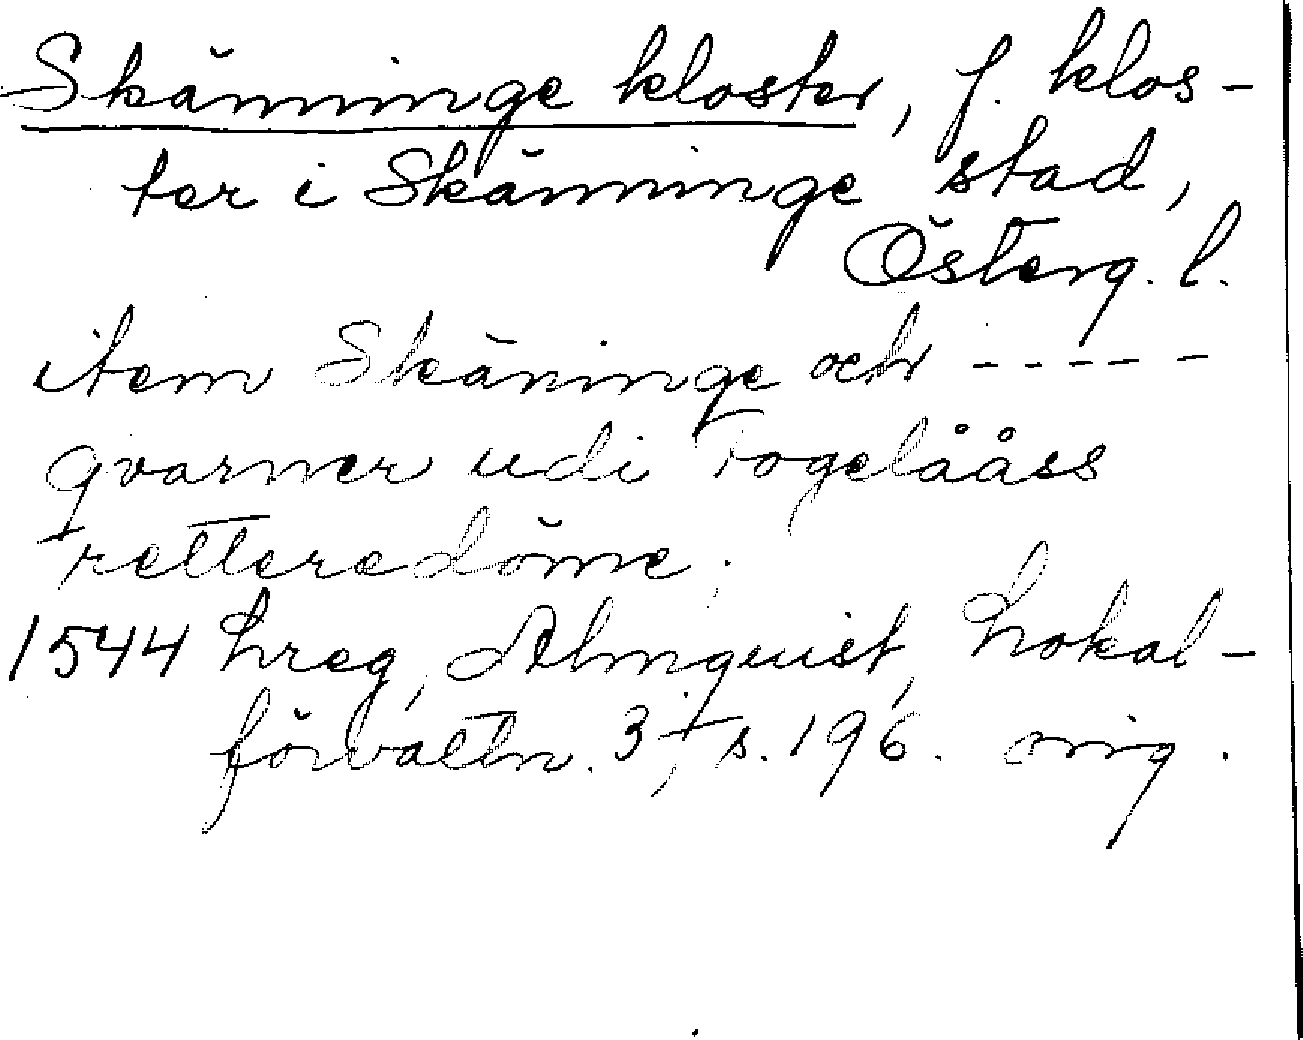 Skänninge kloster, f. klos-
ter i Skänninge stad,
Österg. l.
item Skäninge och -----
qvarner udi Fogelååss
retteredöme.
1544 hreg, Almquist, Lokal-
förvaltn. 3, s. 196. orig.